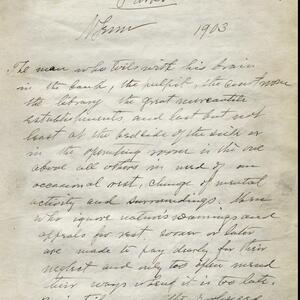 1903
The man who toils with his brain
in the bank, the pulpit, the court room
the library the great mercantile
establishments and last but not
least at the bedside of the sick or
in the operating room is the one
above all others in need of an
occasional rest, change of mental
activity and surroundings. Those
who ignore natures warnings and
appeals for rest sooner or later
are made to pay dearly for their
neglect and very too often mend
their ways when it is too late.
the